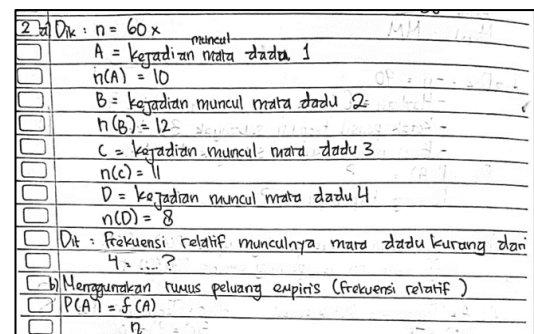 2 a) Dik : n = 60 x
muncul
A = kejadian mata dadu 1
n(A) = 10
B = kejadian muncul mata dadu 2
n(B) = 12
C = kejadian muncul mata dadu 3
n(C) = 11
D = kejadian muncul mata dadu 4
n(D) = 8
Dit : frekuensi relatif munculnya mata dadu kurang dari
4 = ...?
b) Menggunakan rumus peluang empiris (frekuensi relatif)
P(A) = f(A)
n